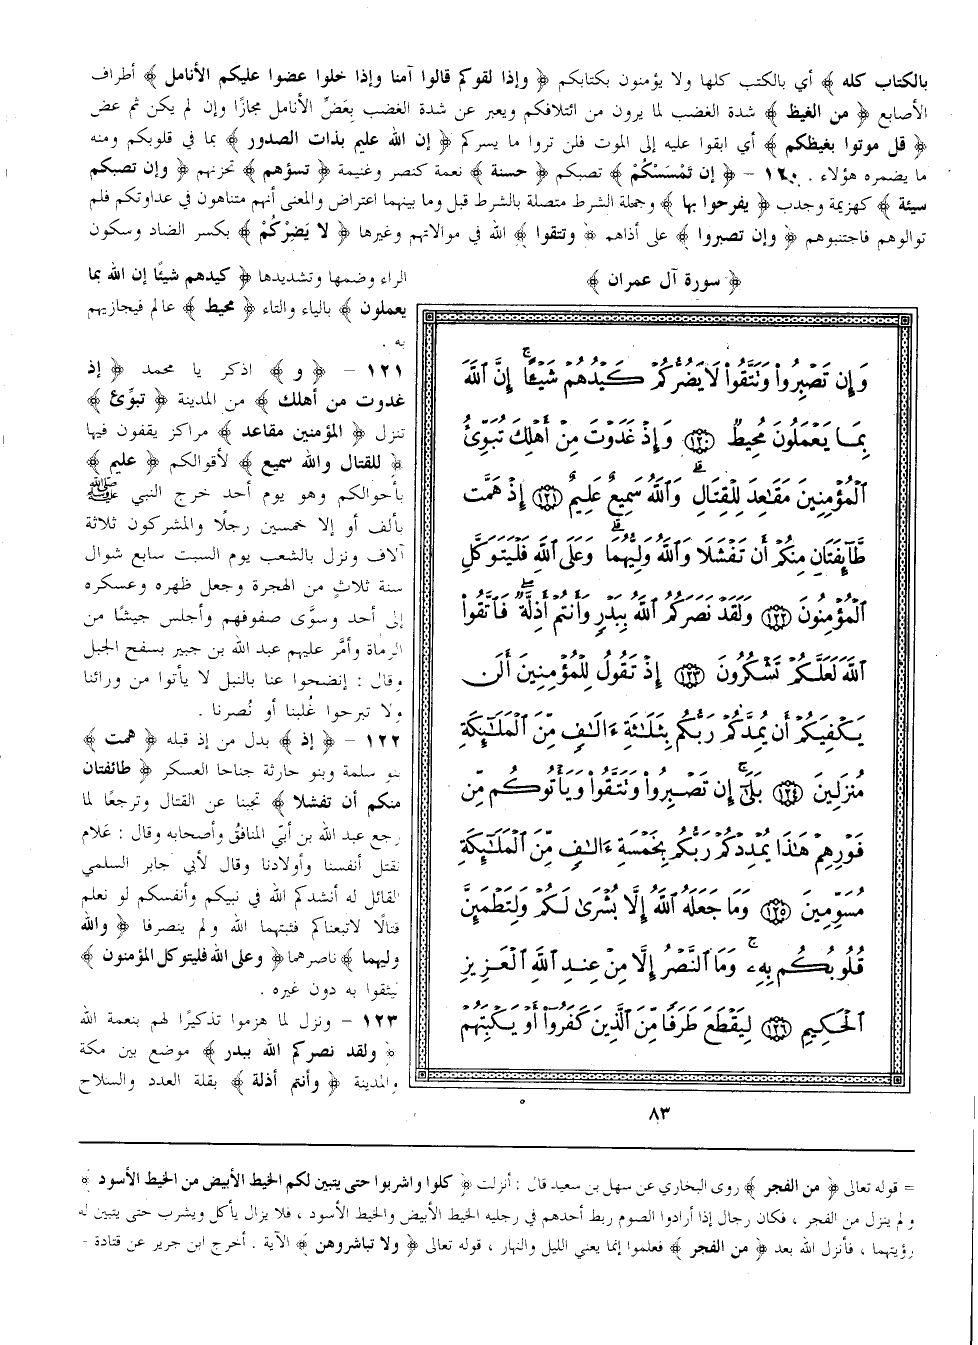 بالكتاب كله ﴾ أي بالكتب كلها ولا يؤمنون بكتابكم ﴿ وإذا لقوكم قالوا آمنا وإذا خلوا عضوا عليكم الأنامل ﴾ أطراف
الأصابع ﴿ من الغيظ ﴾ شدة الغضب لما يرون من ائتلافكم ويعبر عن شدة الغضب بِعَضِّ الأنامل مجازًا وإن لم يكن ثم عض
﴿ قل موتوا بغيظكم ﴾ أي ابقوا عليه إلى الموت فلن تروا ما يسركم ﴿ إن الله عليم بذات الصدور ﴾ بما في قلوبكم ومنه
ما يضمره هؤلاء . ١٢٠ - ﴿ إن تَمْسَسْكُمْ ﴾ تصبكم ﴿ حسنة ﴾ نعمة كنصر وغنيمة ﴿ تسؤهم ﴾ تحزنهم ﴿ وإن تصبكم
سيئة ﴾ كهزيمة وجدب ﴿ يفرحوا بها ﴾ وجملة الشرط متصلة بالشرط قبل وما بينهما اعتراض والمعنى أنهم متناهون في عداوتكم فلم
توالوهم فاجتنبوهم ﴿ وإن تصبروا ﴾ على أذاهم ﴿ وتتقوا ﴾ الله في موالاتهم وغيرها ﴿ لا يَضِرْكُمْ ﴾ بكسر الضاد وسكون
الراء وضمها وتشديدها ﴿ كيدهم شيئًا إن الله بما
يعملون ﴾ بالياء والتاء ﴿ محيط ﴾ عالم فيجازيهم
به .
١٢١ - ﴿ و ﴾ اذكر يا محمد ﴿ إذ
غدوت من أهلك ﴾ من المدينة ﴿ تبوّئ ﴾
تنزل ﴿ المؤمنين مقاعد ﴾ مراكز يقفون فيها
﴿ للقتال والله سميع ﴾ لأقوالكم ﴿ عليم ﴾
بأحوالكم وهو يوم أحد خرج النبي ﷺ
بألف أو إلا خمسين رجلًا والمشركون ثلاثة
آلاف ونزل بالشعب يوم السبت سابع شوال
سنة ثلاثٍ من الهجرة وجعل ظهره وعسكره
إلى أحد وسوَّى صفوفهم وأجلس جيشًا من
الرماة وأمَّر عليهم عبد الله بن جبير بسفح الجبل
وقال : إنضحوا عنا بالنبل لا يأتوا من ورائنا
ولا تبرحوا غُلبنا أو نُصرنا .
١٢٢ - ﴿ إذ ﴾ بدل من إذ قبله ﴿ همت ﴾
بنو سلمة وبنو حارثة جناحا العسكر ﴿ طائفتان
منكم أن تفشلا ﴾ تجبنا عن القتال وترجعًا لما
رجع عبد الله بن أبيّ المنافق وأصحابه وقال : عَلام
نقتل أنفسنا وأولادنا وقال لأبي جابر السلمي
القائل له أنشدكم الله في نبيكم وأنفسكم لو نعلم
قتالًا لاتبعناكم فثبتهما الله ولم ينصرفا ﴿ والله
وليهما ﴾ ناصرهما ﴿ وعلى الله فليتوكل المؤمنون ﴾
ليثقوا به دون غيره .
١٢٣ - ونزل لما هزموا تذكيرًا لهم بنعمة الله
﴿ ولقد نصركم الله ببدر ﴾ موضع بين مكة
والمدينة ﴿ وأنتم أذلة ﴾ بقلة العدد والسلاح
﴿ سورة آل عمران ﴾
وَإِن تَصۡبِرُواْ وَتَتَّقُواْ لَا يَضُرُّكُمۡ كَيۡدُهُمۡ شَيۡـًٔاۗ إِنَّ ٱللَّهَ
بِمَا يَعۡمَلُونَ مُحِيطٞ ١٢٠ وَإِذۡ غَدَوۡتَ مِنۡ أَهۡلِكَ تُبَوِّئُ
ٱلۡمُؤۡمِنِينَ مَقَٰعِدَ لِلۡقِتَالِۗ وَٱللَّهُ سَمِيعٌ عَلِيمٌ ١٢١ إِذۡ هَمَّت
طَّآئِفَتَانِ مِنكُمۡ أَن تَفۡشَلَا وَٱللَّهُ وَلِيُّهُمَاۗ وَعَلَى ٱللَّهِ فَلۡيَتَوَكَّلِ
ٱلۡمُؤۡمِنُونَ ١٢٢ وَلَقَدۡ نَصَرَكُمُ ٱللَّهُ بِبَدۡرٖ وَأَنتُمۡ أَذِلَّةٞۖ فَٱتَّقُواْ
ٱللَّهَ لَعَلَّكُمۡ تَشۡكُرُونَ ١٢٣ إِذۡ تَقُولُ لِلۡمُؤۡمِنِينَ أَلَن
يَكۡفِيَكُمۡ أَن يُمِدَّكُمۡ رَبُّكُم بِثَلَٰثَةِ ءَالَٰفٖ مِّنَ ٱلۡمَلَٰٓئِكَةِ
مُنزَلِينَ ١٢٤ بَلَىٰٓۚ إِن تَصۡبِرُواْ وَتَتَّقُواْ وَيَأۡتُوكُم مِّن
فَوۡرِهِمۡ هَٰذَا يُمۡدِدۡكُمۡ رَبُّكُم بِخَمۡسَةِ ءَالَٰفٖ مِّنَ ٱلۡمَلَٰٓئِكَةِ
مُسَوِّمِينَ ١٢٥ وَمَا جَعَلَهُ ٱللَّهُ إِلَّا بُشۡرَىٰ لَكُمۡ وَلِتَطۡمَئِنَّ
قُلُوبُكُم بِهِۦۗ وَمَا ٱلنَّصۡرُ إِلَّا مِنۡ عِندِ ٱللَّهِ ٱلۡعَزِيزِ
ٱلۡحَكِيمِ ١٢٦ لِيَقۡطَعَ طَرَفٗا مِّنَ ٱلَّذِينَ كَفَرُوٓاْ أَوۡ يَكۡبِتَهُمۡ
٨٣
= قوله تعالى ﴿ من الفجر ﴾ روى البخاري عن سهل بن سعيد قال : أنزلت ﴿ كلوا واشربوا حتى يتبين لكم الخيط الأبيض من الخيط الأسود ﴾
ولم ينزل من الفجر ، فكان رجال إذا أرادوا الصوم ربط أحدهم في رجليه الخيط الأبيض والخيط الأسود ، فلا يزال يأكل ويشرب حتى يتبين له
رؤيتهما ، فأنزل الله بعد ﴿ من الفجر ﴾ فعلموا إنما يعني الليل والنهار ، قوله تعالى ﴿ ولا تباشروهن ﴾ الآية . أخرج ابن جرير عن قتادة -